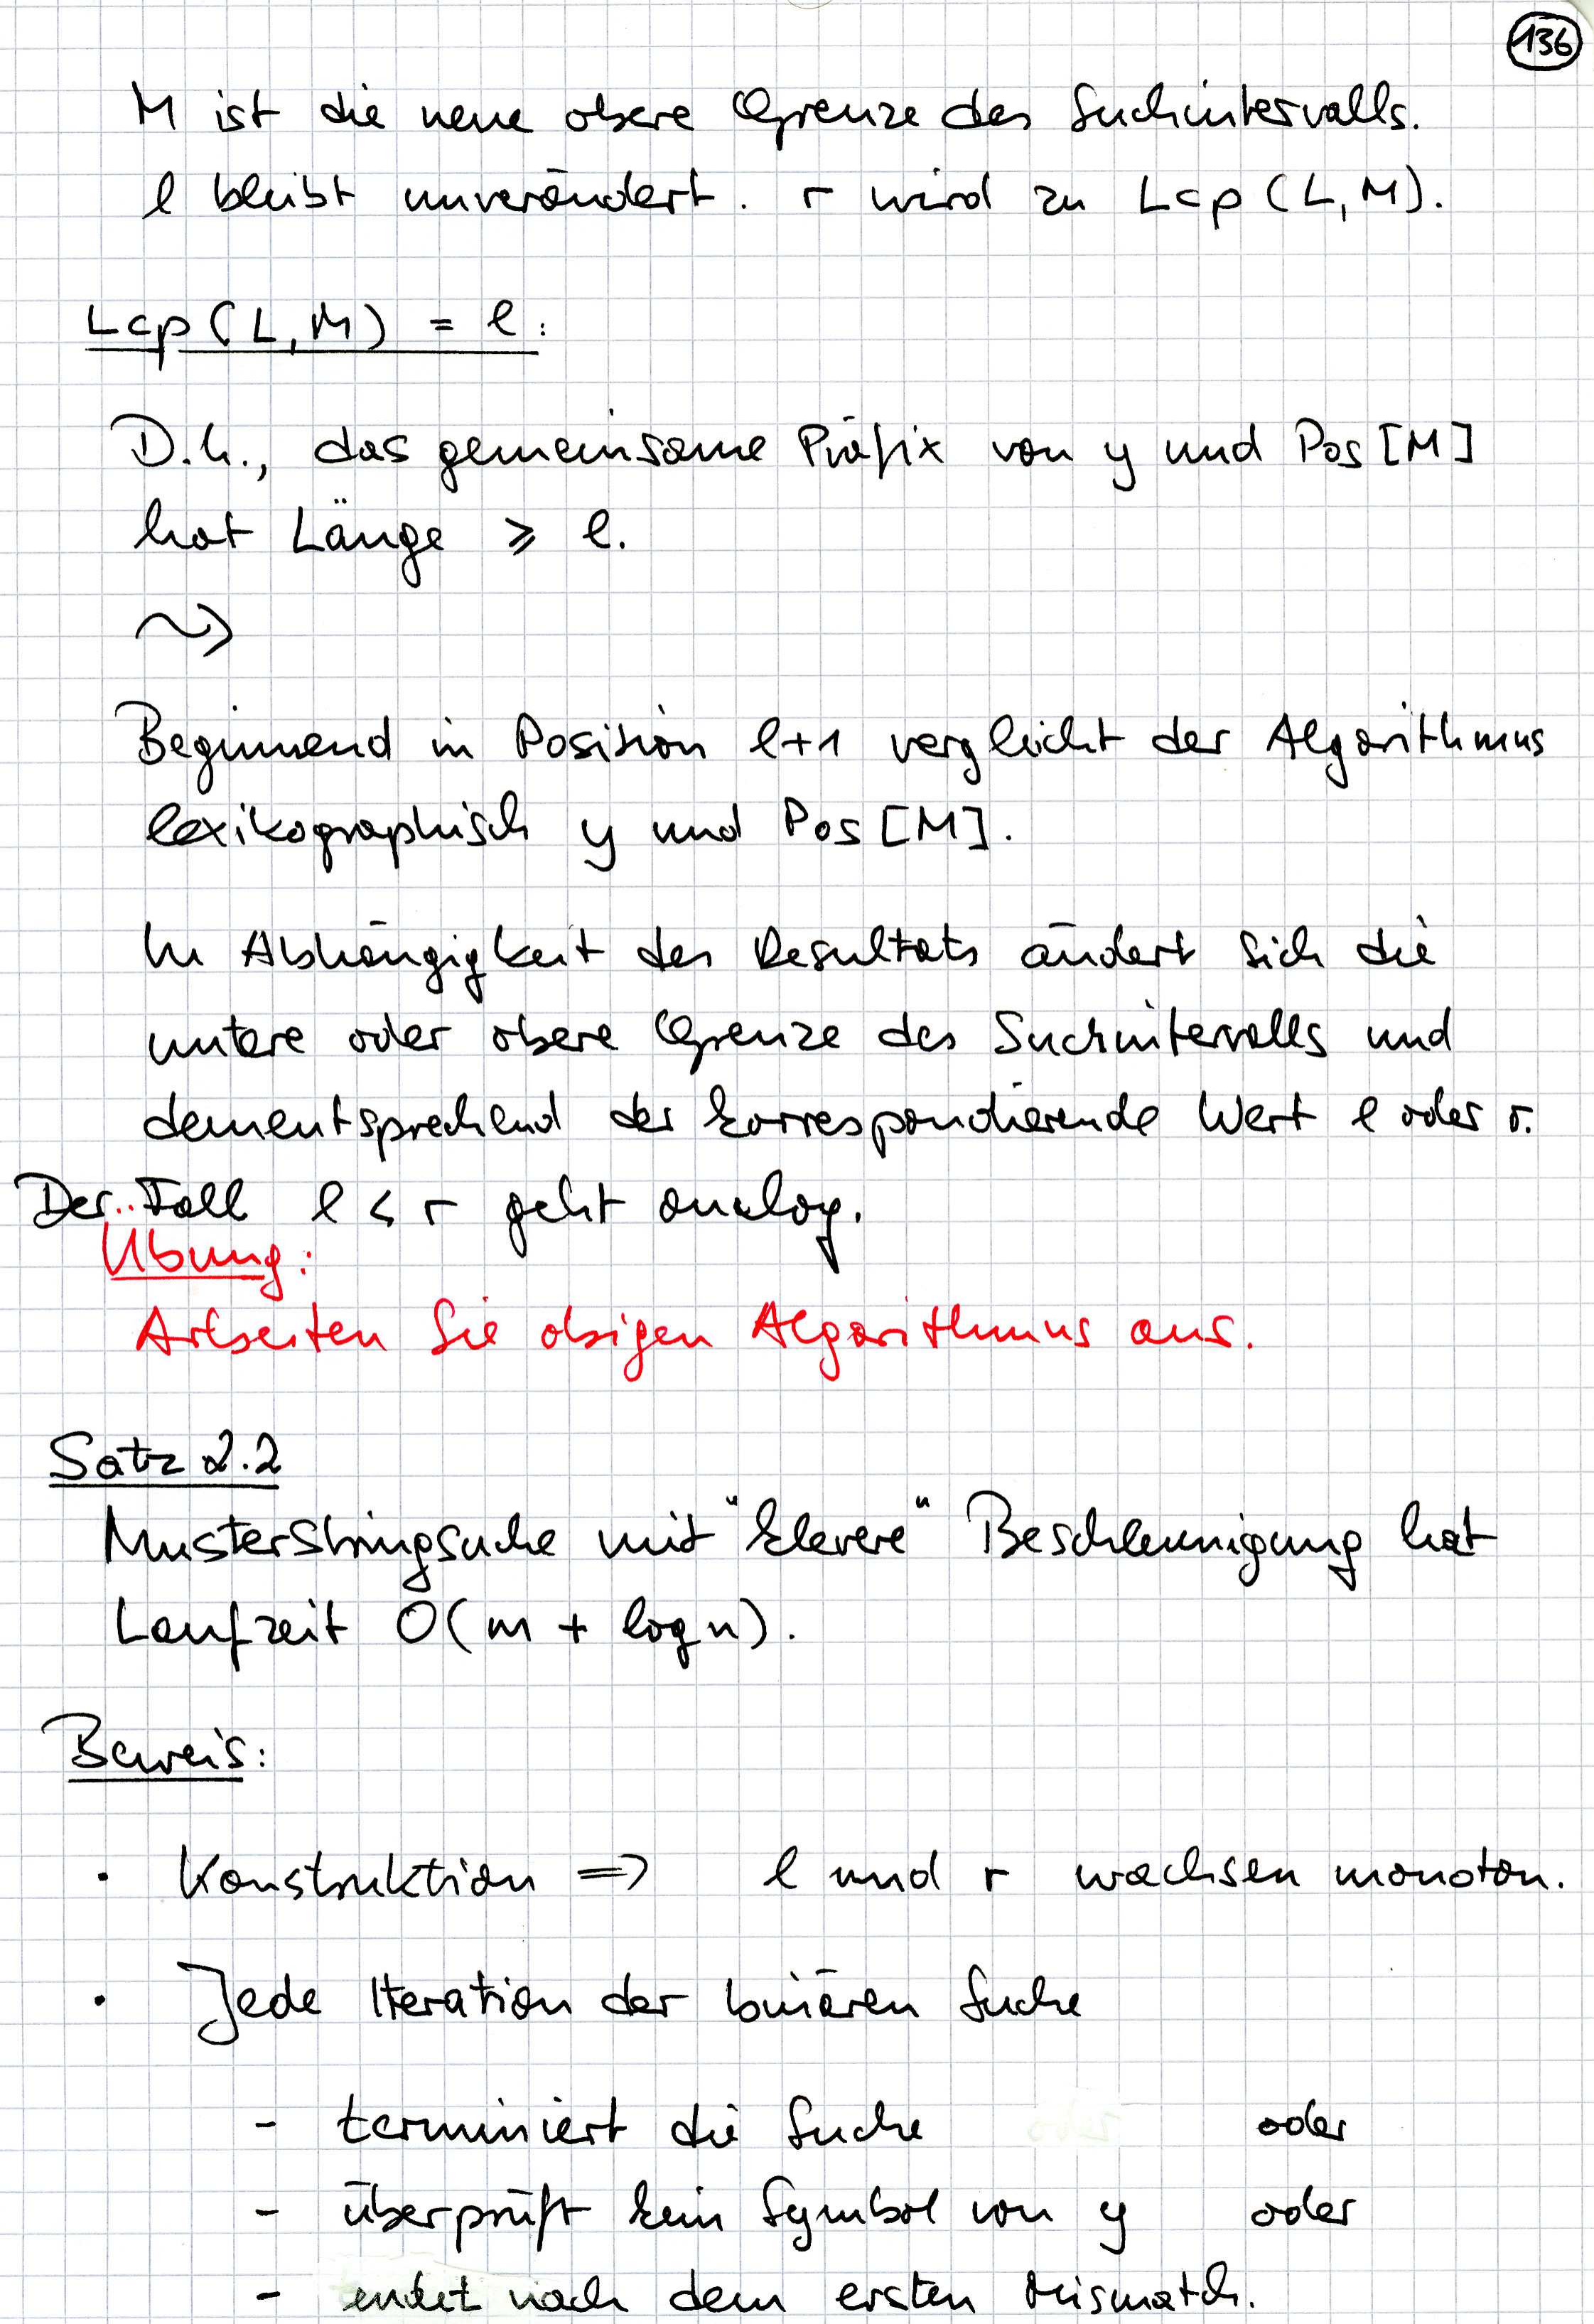 136
M ist die neue obere Grenze des Suchintervalls.
l bleibt unverändert. r wird zu Lcp(L,M).
Lcp(L,M) = l:
D.h., das gemeinsame Präfix von y und Pos[M]
hat Länge ≥ l.
⤳
Beginnend in Position l+1 vergleicht der Algorithmus
lexikographisch y und Pos[M].
In Abhängigkeit des Resultats ändert sich die
untere oder obere Grenze des Suchintervalls und
dementsprechend der korrespondierende Wert l oder r.
Der Fall l < r geht analog.
Übung:
Arbeiten Sie obigen Algorithmus aus.
Satz 2.2
Musterstringsuche mit "klevere" Beschleunigung hat
Laufzeit O(m + log n).
Beweis:
· Konstruktion => l und r wachsen monoton.
· Jede Iteration der binären Suche
- terminiert die Suche oder
- überprüft kein Symbol von y oder
- endet nach dem ersten Mismatch.